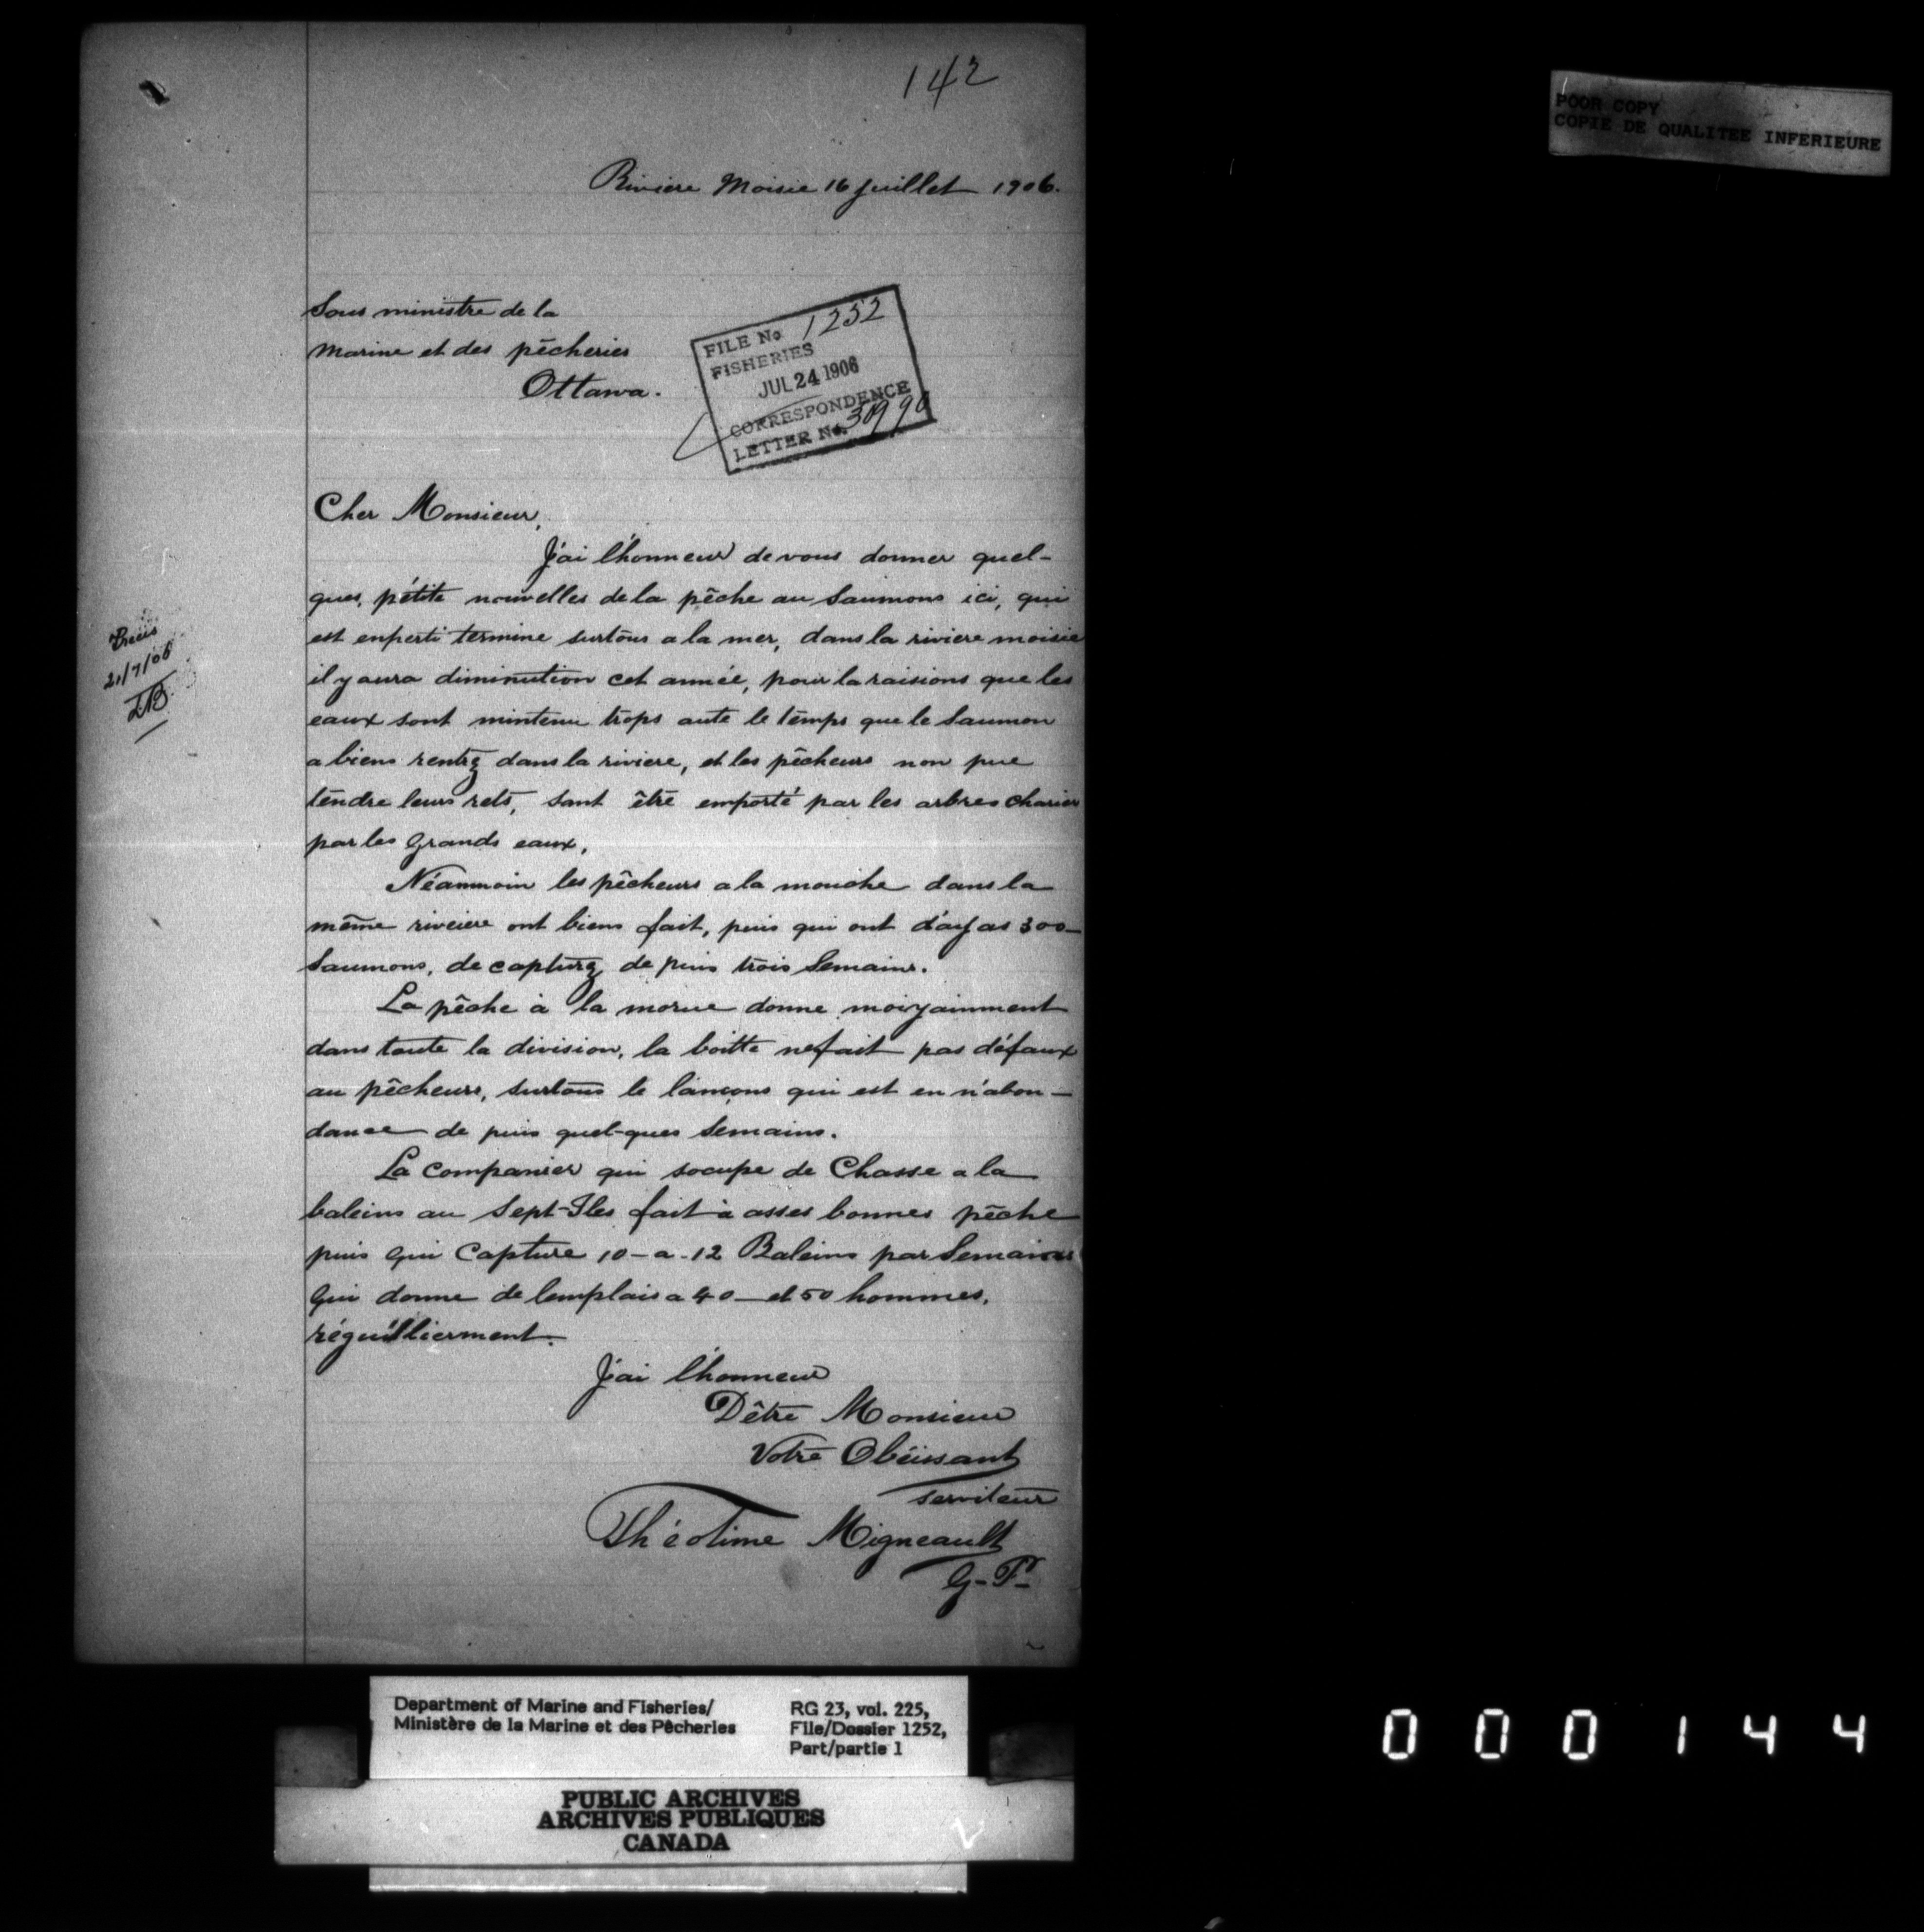 142
POOR COPY
COPIE DE QUALITEE INFERIEURE
Riviere Moisie 16 juillet 1906.
Sous ministre de la
marine et des pêcheries
Ottawa.
FILE No. 1252
FISHERIES
JUL 24 1906
CORRESPONDENCE
LETTER No.
Cher Monsieur,
J'ai l'honneur de vous donner quel-
ques, pétite nouvelles de la pêche au Saumons ici, qui
est enperti termine surtous a la mer, dans la riviere moisie
il y aura diminution cet année, pour la raisions que les
eaux sont mintenu trops aute le temps que le Saumon
a biens rentrz dans la riviere, et les pêcheurs non pue
tendre leurs rets, sant être emporté par les arbres charier
par les Grands eaux,
Néanmoin les pêcheurs a la mouche dans la
même riveiere ont biens fait, puis qui ont d'ayas 300-
Saumons, de capturz de puis trois Semains.
La pêche à la morue donne moiyainment
dans toute la division, la boitte nefait pas défaux
au pêcheurs, surtous le lançons qui est en n'abon-
dance de puis quel-ques Semains.
La Companier qui socupe de Chasse a la
baleins au Sept-Iles fait à asses bonnes pêche
puis qui Capture 10-a-12 Baleins par Semaines
Qui donne de lemplais a 40-et 50 hommes,
réguillierment.
J'ai l'honneur
D'être Monsieur
Votre Obéissant
serviteur
Théotime Migneault
G-P-
21/7/06
Department of Marine and Fisheries/
Ministère de la Marine et des Pêcheries
RG 23, vol. 225,
File/Dossier 1252,
Part/partie 1
PUBLIC ARCHIVES
ARCHIVES PUBLIQUES
CANADA
000144